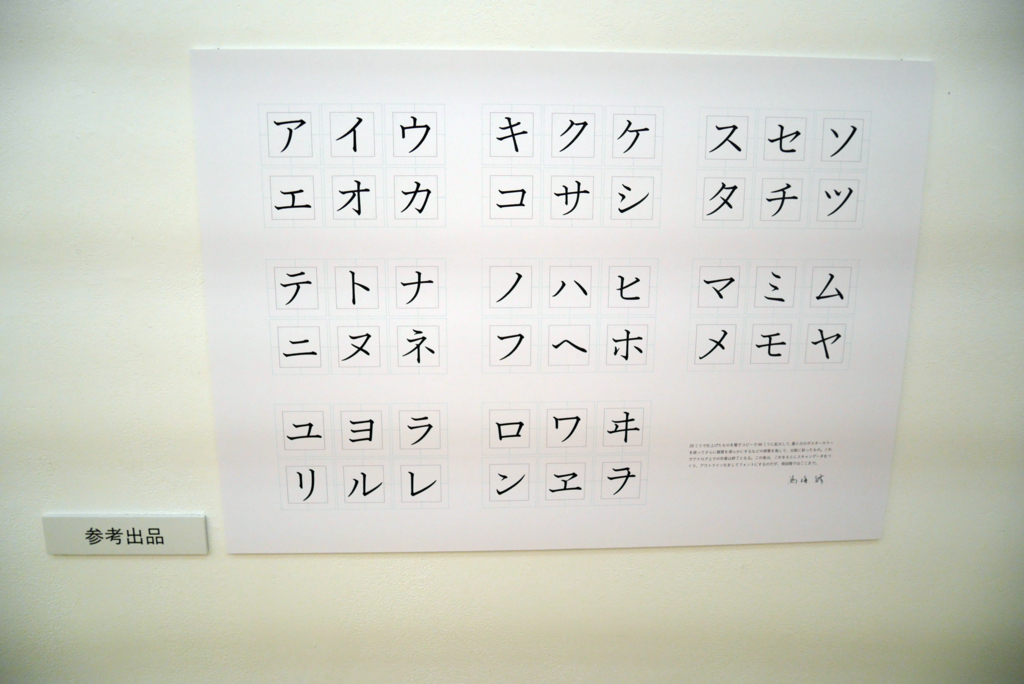 アイウ
エオカ
キクケ
コサシ
スセソ
タチツ
テトナ
ニヌネ
ノハヒ
フヘホ
マミム
メモヤ
ユヨラ
リルレ
ロワヰ
ンヱヲ
参考出品